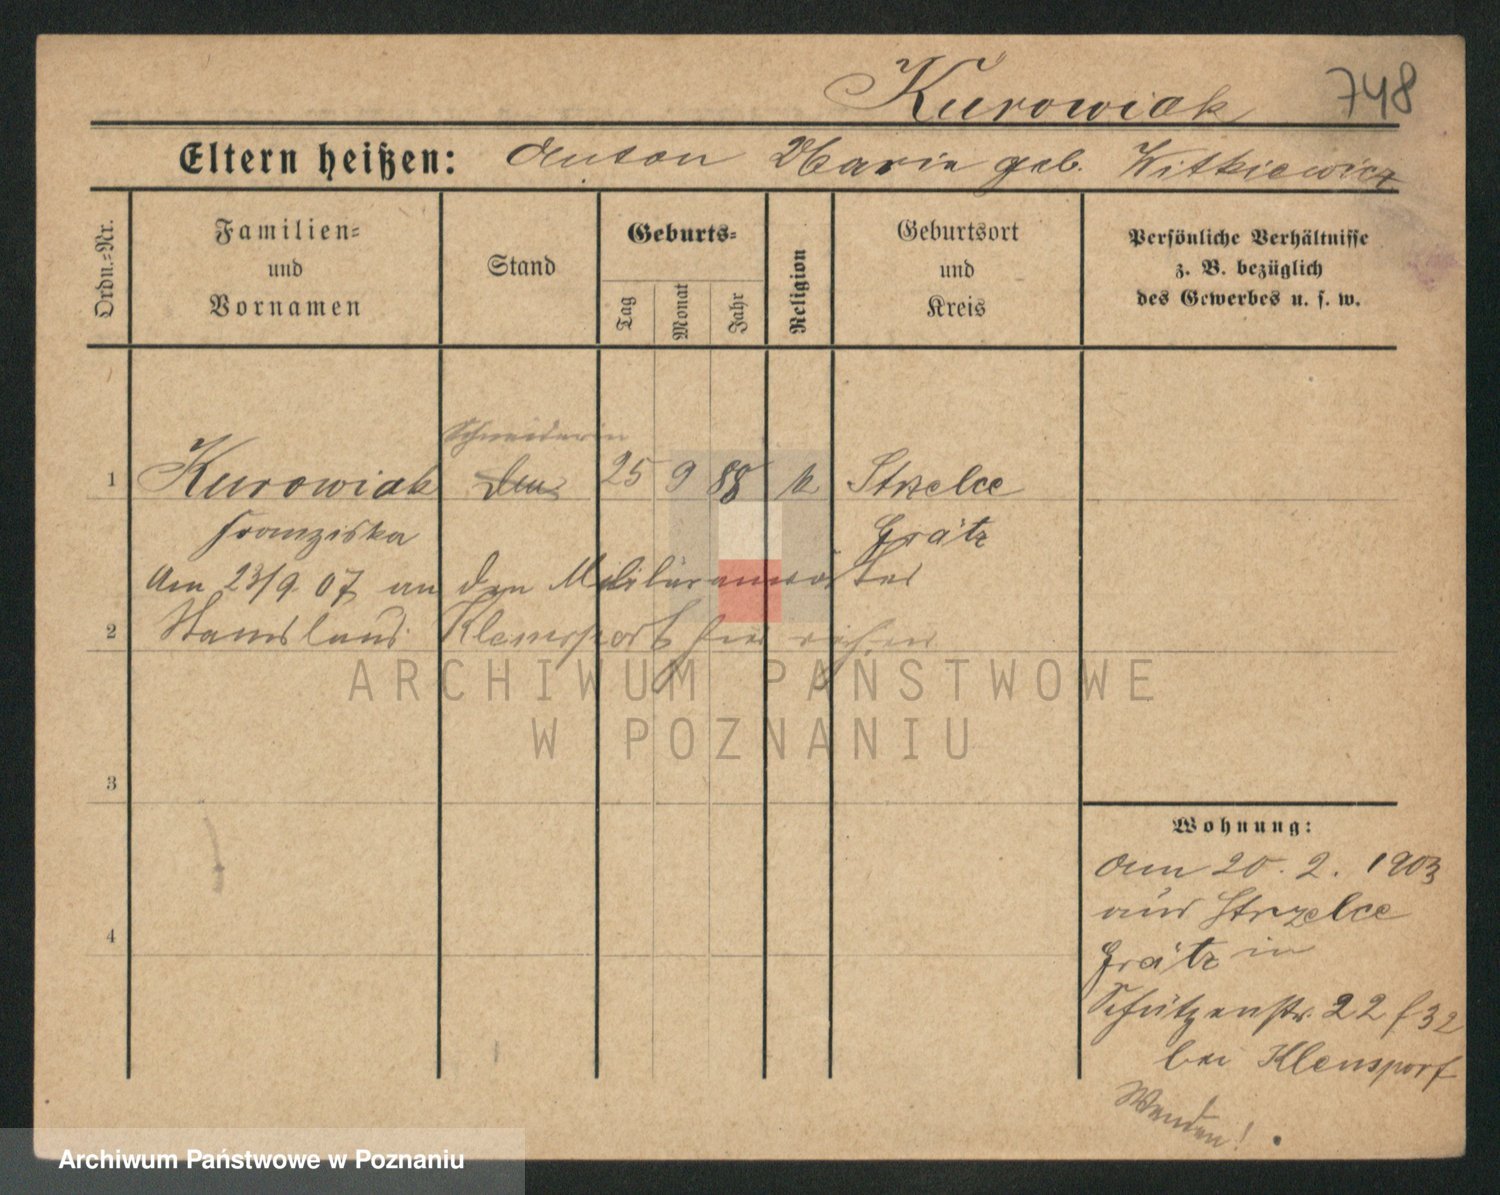 Kurowiak 748
Eltern heißen: Anton Marie geb. Witkiewicz
Ordn.=Nr.
Familien=
und
Vornamen
Stand
Geburts=
Tag
Monat
Jahr
Religion
Geburtsort
und
Kreis
Persönliche Verhältnisse
z. B. bezüglich
des Gewerbes u. s. w.
Schneiderin
1 Kurowiak 25 9 88 k Strzelce
Franziska Grätz
Am 23/9 07 an den Militäranwärter
2 Stanislaus
3
4
Wohnung:
Am 20. 2. 1903
aus Strzelce
Grätz in
Schützenstr. 22 f 32
bei Klensporf
Wenden!
ARCHIWUM PAŃSTWOWE
W POZNANIU
Archiwum Państwowe w Poznaniu